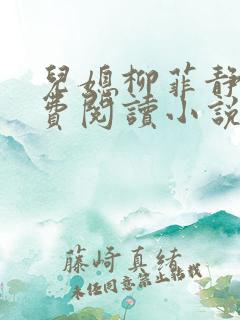 兒媳柳菲靜
費閱讀小說
藤崎真緒
未經同意禁止轉載